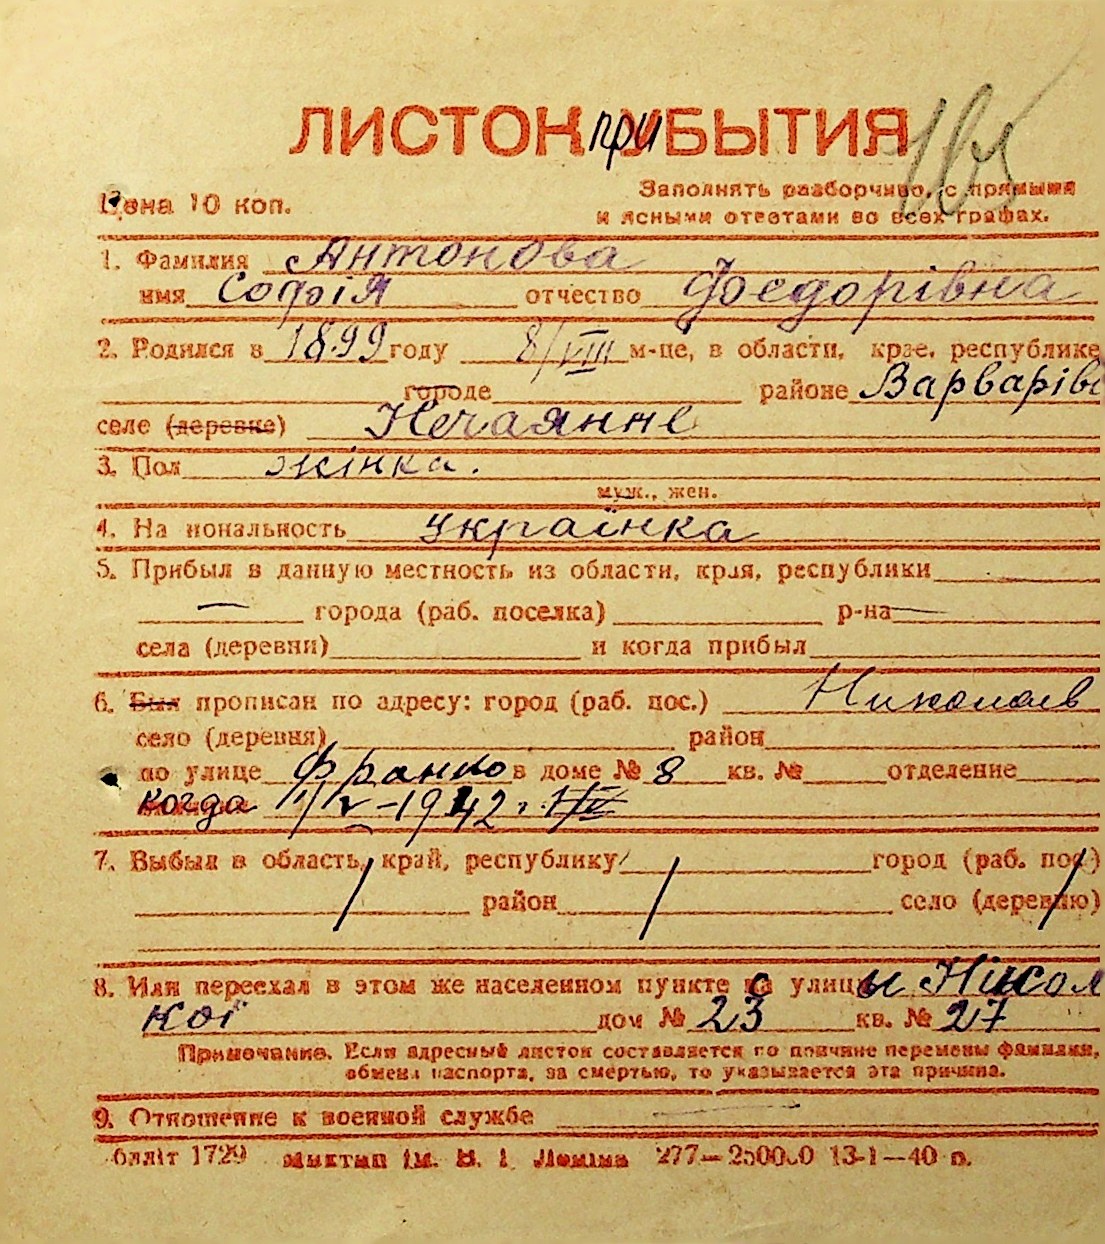 ЛИСТОК приУБЫТИЯ
165
Цена 10 коп.
Заполнять разборчиво, с прямыми
и ясными ответами во всех графах.
1. Фамилия Антонова
имя Софія отчество Фоєдорівна
2. Родился в 1899 году 8/VIII м-це, в области, крае, республике
городе районе Варварівс
селе (деревне) Нечаянне
3. Пол жінка.
муж., жен.
4. На иональность українка
5. Прибыл в данную местность из области, края, республики
— города (раб. поселка) р-на —
села (деревни) и когда прибыл
6. Был прописан по адресу: город (раб. пос.) Николаев
село (деревня) район
по улице Франко в доме № 8 кв. № отделение
когда 1/V-1942 г.
7. Выбыл в область, край, республику город (раб. пос)
район село (деревню)
8. Или переехал в этом же населенном пункте с улицы Нікол
кої дом № 23 кв. № 27
Примечание. Если адресный листок составляется по причине перемены фамилии,
обмена паспорта, за смертью, то указывается эта причина.
9. Отношение к военной службе —
блліт 1729 ім. В. І. Леніна 277—250000 13-1—40 р.